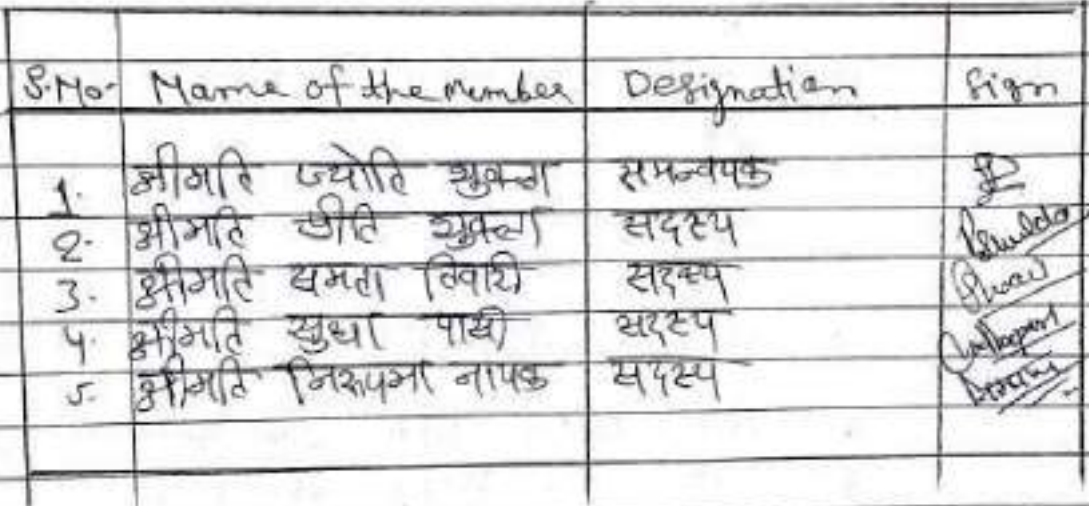 S.No. Name of the Member Designation Sign
1. श्रीमति ज्योति शुक्ला समन्वयक
2. श्रीमति प्रीति शुक्ला सदस्य
3. श्रीमति ममता तिवारी सदस्य
4. श्रीमति सुधा पासी सदस्य
5. श्रीमति निरुपमा नायक सदस्य